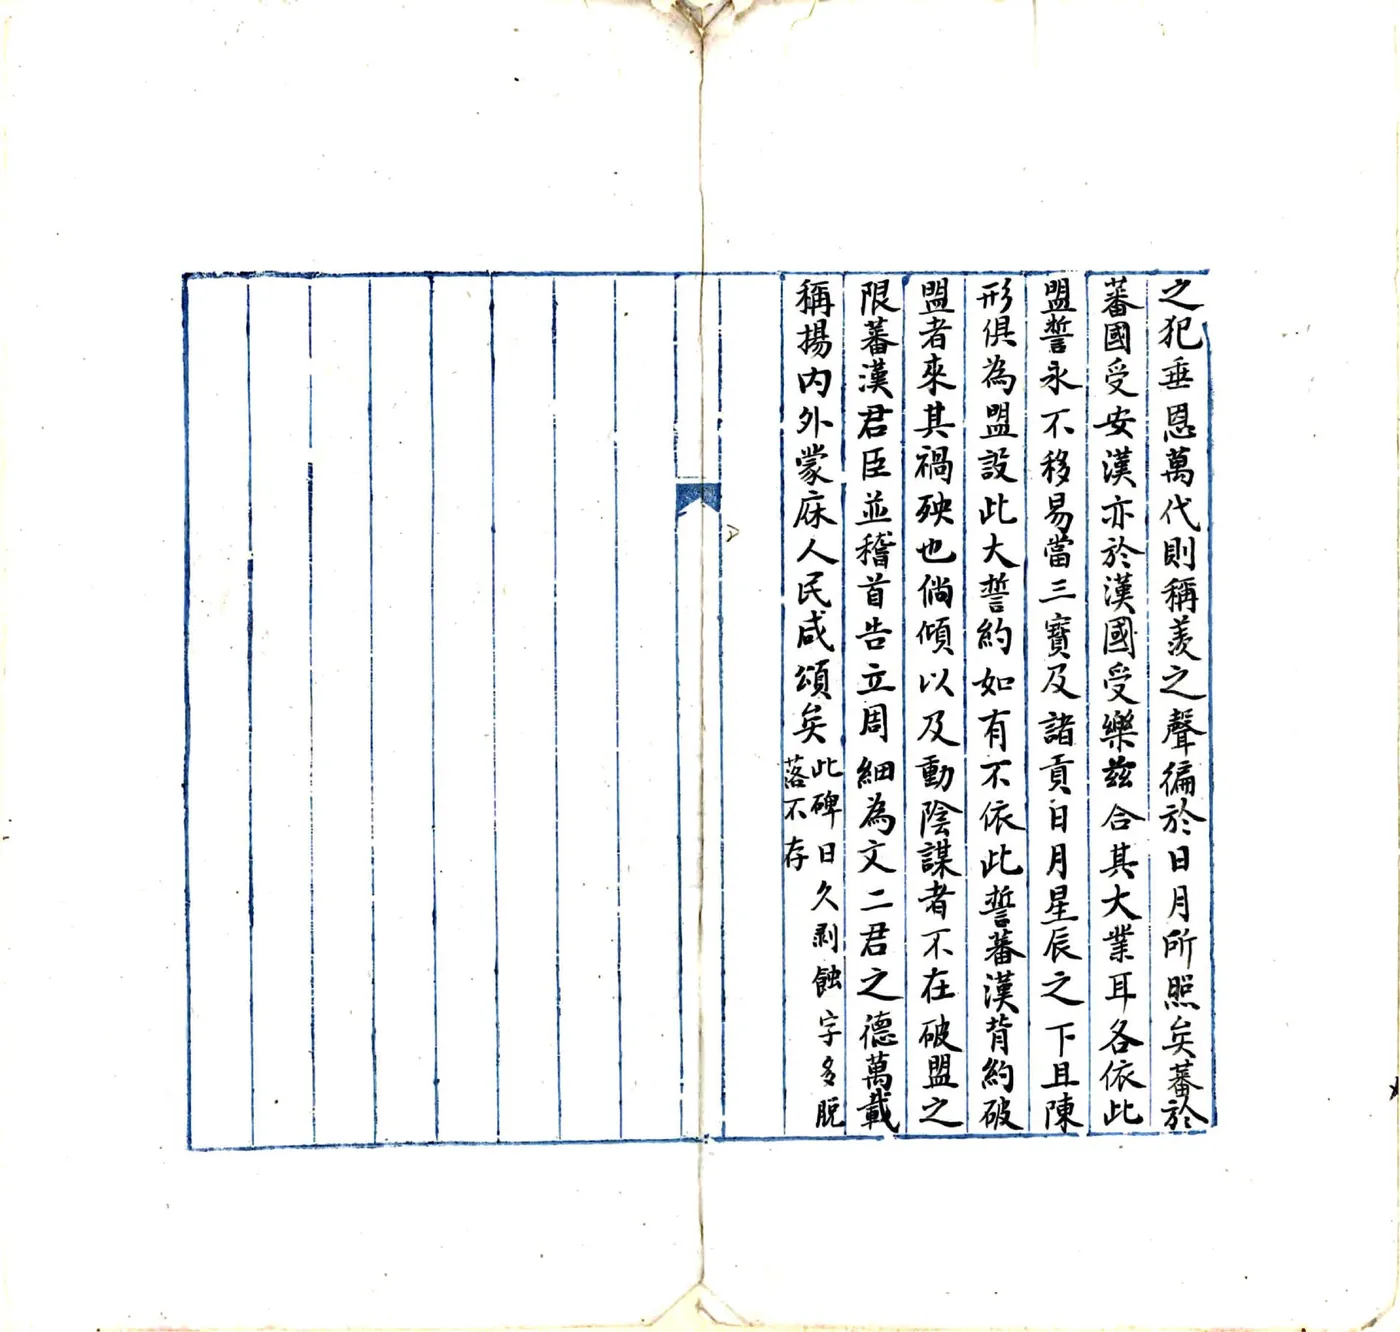 之犯垂恩萬代則稱羨之聲徧於日月所照矣蕃於
蕃國受安漢亦於漢國受樂茲合其大業耳各依此
盟誓永不移易當三寶及諸貢日月星辰之下且陳
形俱為盟設此大誓約如有不依此誓蕃漢背約破
盟者來其禍殃也倘傾以及動陰謀者不在破盟之
限蕃漢君臣並稽首告立周細為文二君之德萬載
稱揚內外蒙庥人民咸頌矣
此碑日久剥蝕字多脫
落不存